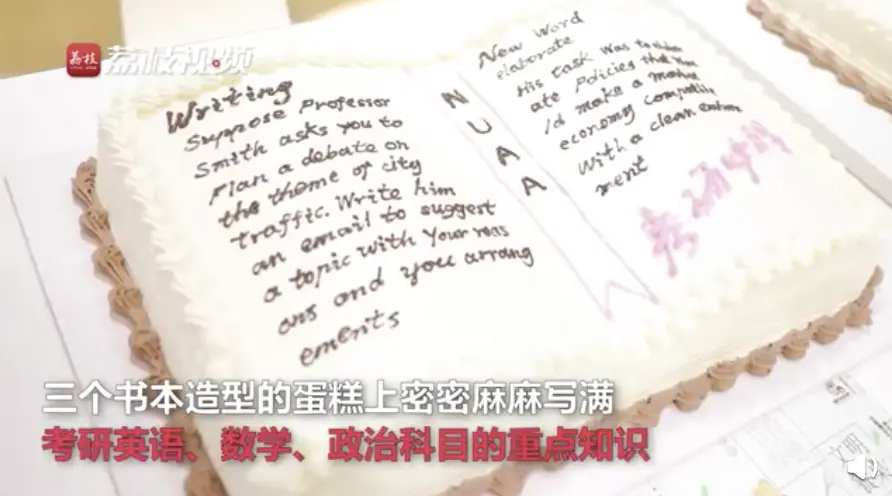 荔枝
荔枝视频
Writing
Suppose Professor
Smith asks you to
Plan a debate on
the theme of city
traffic. Write him
an email to suggest
a topic with your reas
ons and you arrang
ements
NUAA
New Word
elaborate
His task was to
ate Policies that
ld make a
economy
With a clean
ment
考研
三个书本造型的蛋糕上密密麻麻写满
考研英语、数学、政治科目的重点知识